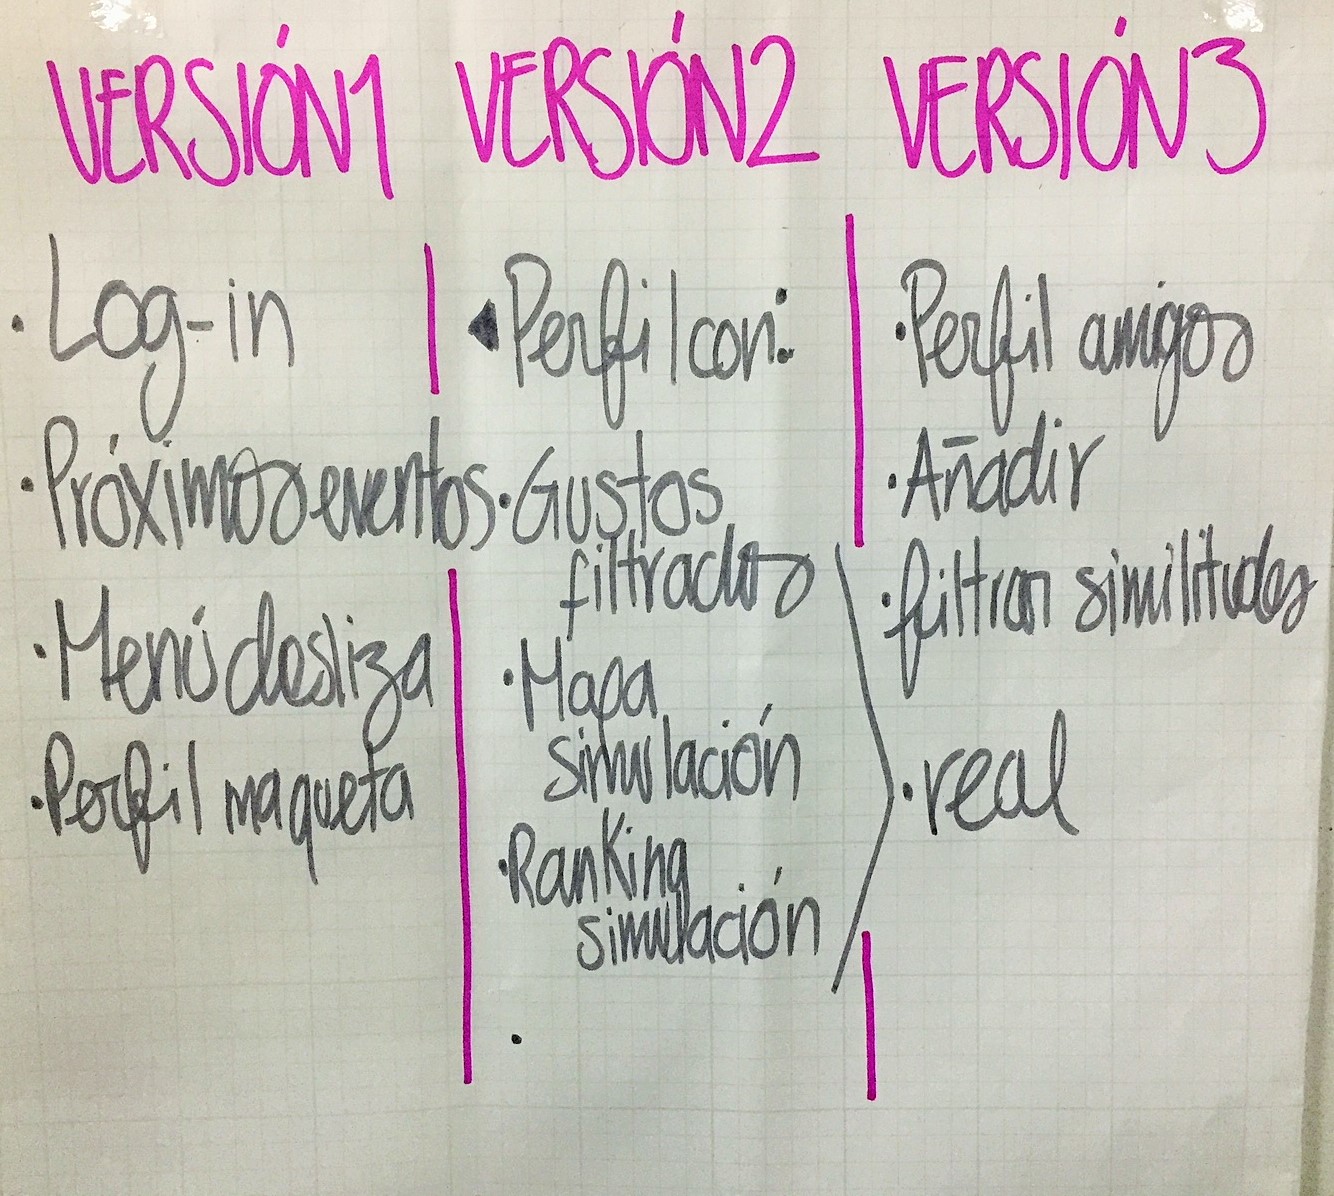 VERSIÓN1
· Log-in
· Próximos eventos
· Menú desliza
· Perfil maqueta
VERSIÓN2
Perfil con:
· Gustos
filtrados
· Mapa
simulación
· Ranking
simulación
·
VERSIÓN3
· Perfil amigos
· Añadir
· filtran similitudes
· real